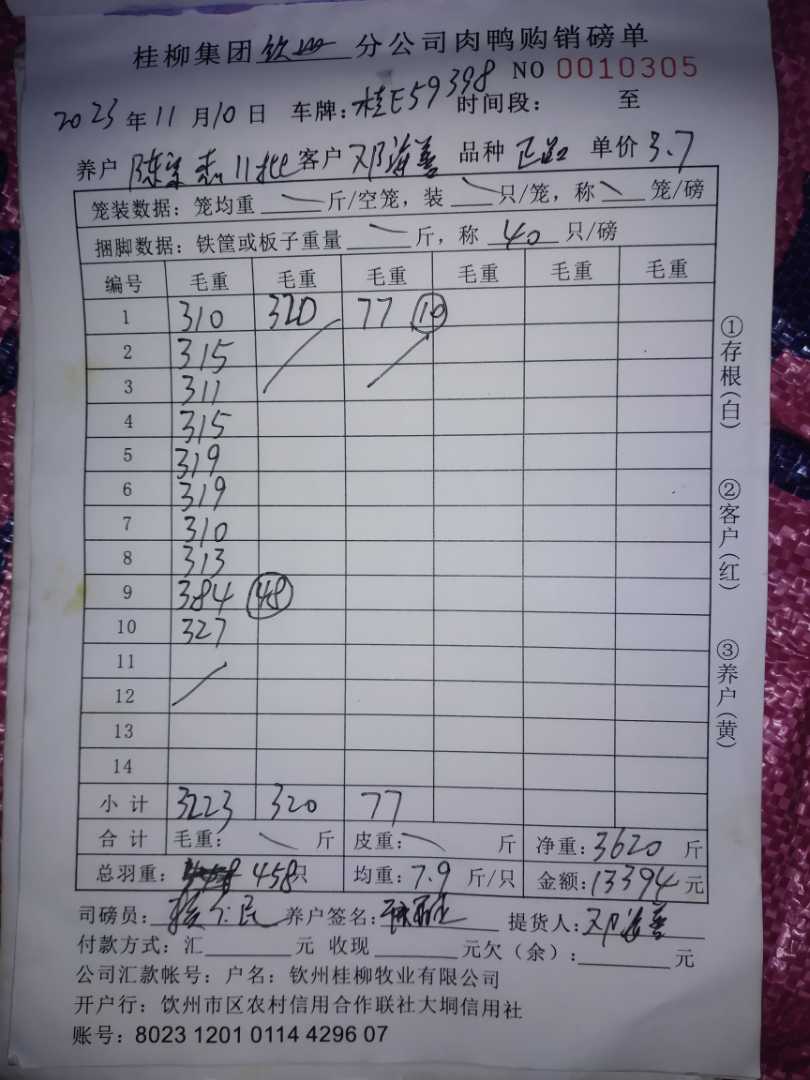 桂柳集团钦州分公司肉鸭购销磅单
NO 0010305
2023年11月10日 车牌:桂E59398 时间段: 至
养户 陈 11批 客户 邓海善 品种 正品 单价 3.7
笼装数据:笼均重 斤/空笼,装 只/笼,称 笼/磅
捆脚数据:铁筐或板子重量 斤,称 40 只/磅
编号 毛重 毛重 毛重 毛重 毛重 毛重
1 310 320 77 10
2 315
3 311
4 315
5 319
6 319
7 310
8 313
9 384 48
10 327
11
12
13
14
小计 3223 320 77
合计 毛重: 斤 皮重: 斤 净重:3620 斤
总羽重: 458只 均重:7.9 斤/只 金额:13394元
司磅员: 民 养户签名:陈 提货人:邓海善
付款方式:汇 元 收现 元欠(余): 元
公司汇款帐号:户名:钦州桂柳牧业有限公司
开户行:饮州市区农村信用合作联社大垌信用社
账号:8023 1201 0114 4296 07
①存根(白)
②客户(红)
③养户(黄)